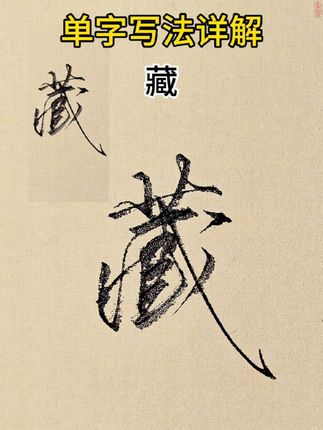 单字写法详解
藏
藏
藏